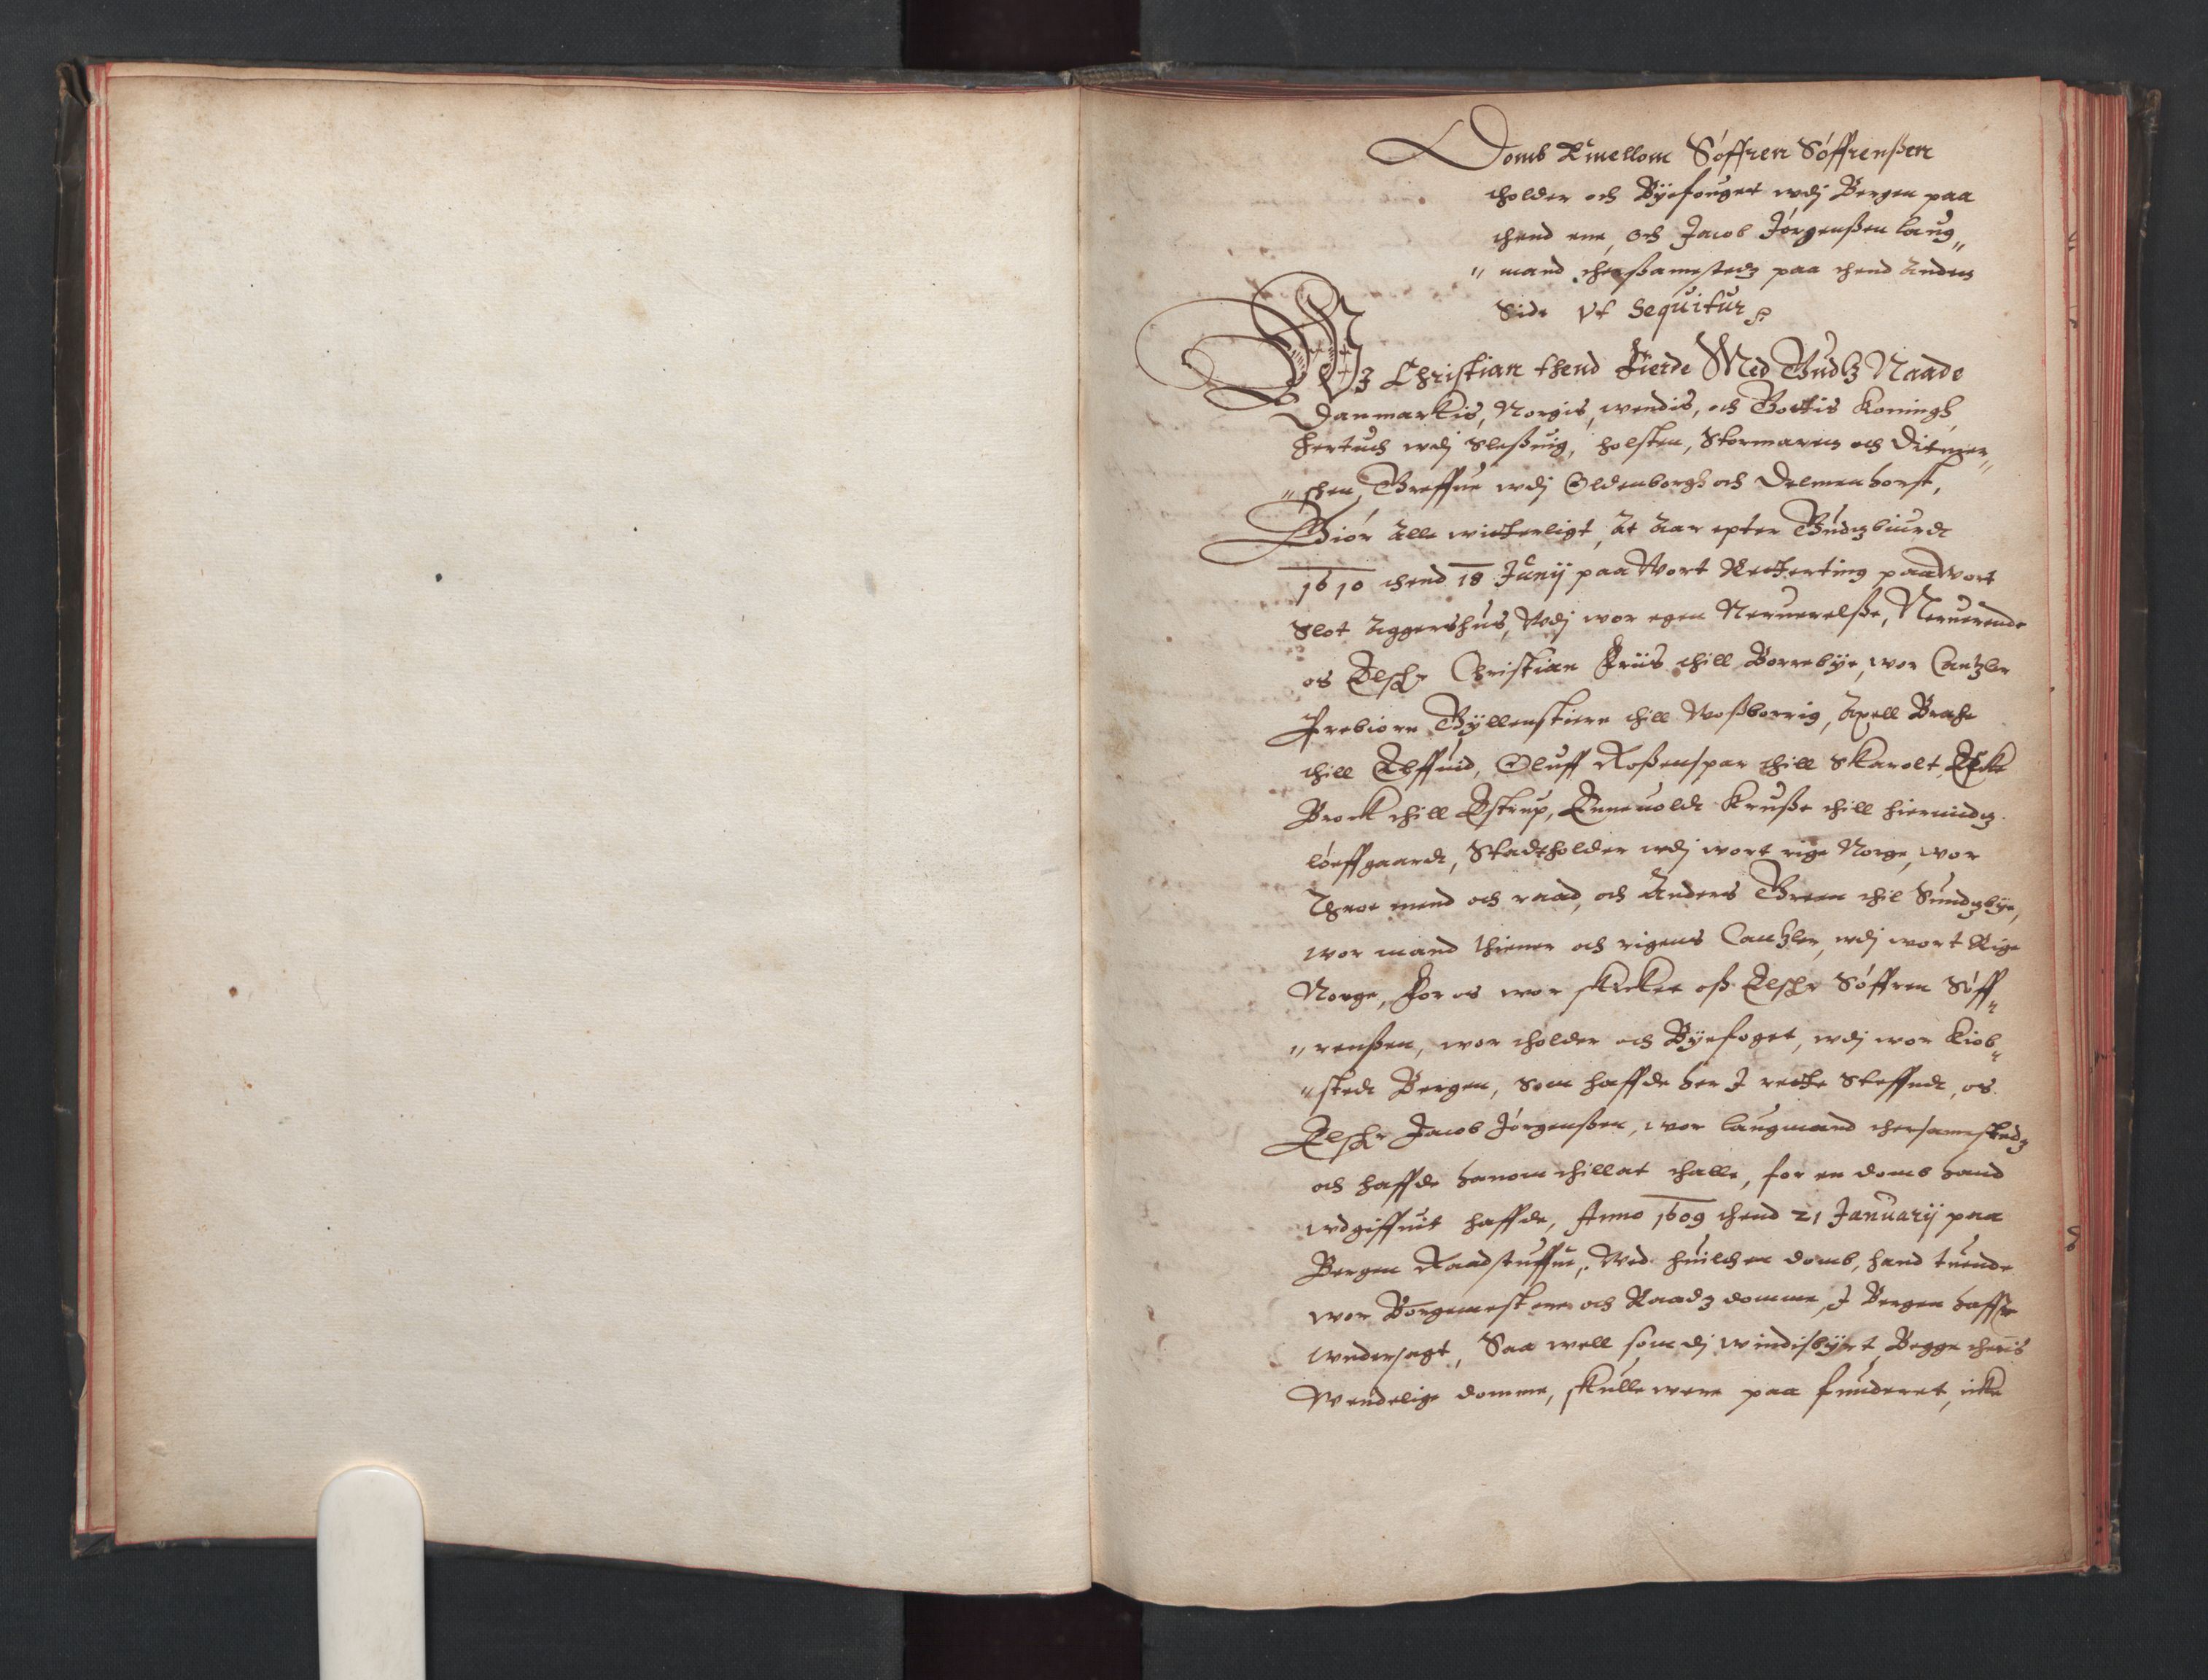 Domb Emellom Søffren Søffrenßen
tholder och Byefouget wdj Bergen paa
thend ene, och Jacob Jørgenßen laug„
„mand therßamestedz paa thend Anden
Side Vt Sequitur
Wj Christian thend Fierde Med Gudtz Naade
Danmarkis, Norgis, wendis, och Gottis Koningh
Hertuch wdj Sleßuig, Holsten, Stormaren och Ditmer„
„schen, Greffue wdj Oldenborgh och Delmenhorst,
Giør Alle witterligt, At Aar epter Gudtzbiurdt
1610 thend 18 Junij paa Vort Retterting paa Wort
Slot Aggershus, Wdj wor egen Neruerelße, Neruerende
os Elsche Christian Friis thill Borrebye, wor Cantzler
Prebiørn Gyllenstiern thill Woßborrig, Axell Brahe
thill Elffuid, Oluff Roßenspar thill Skarolt, Eske
Brock thill Estrup, Enneuoldt Kruße thill Hiermidtz
løeffgaardt, Stadtholder wdj wort rige Norge, wor
Throe mend och raad, och Anders Green thil Sundtzbye,
wor mand thiener och rigens Cantzler, wdj wort Rige
Norge, For os wor skicket oß Elsche Søffren Søff„
„renßen, wor tholder och Byefoget, wdj wor Kiøb„
„stedt Bergen, Som haffde her I rette Steffndt, os
Elsche Jacob Jørgenßen, wor laugmand thersamestedz
och haffde hanom thillat thalle, for en domb hand
wdgiffuit haffde, Anno 1609 thend 21 Januarij paa
Bergen Raadstuffue, Wed huilchen domb, hand tuende
wor Borgemestere och Raadz domme, I Bergen haffr
wndersagt, Saa well som dj windisbyrt, Begge theris
Wendelige domme, skulle were paa funderet, icke